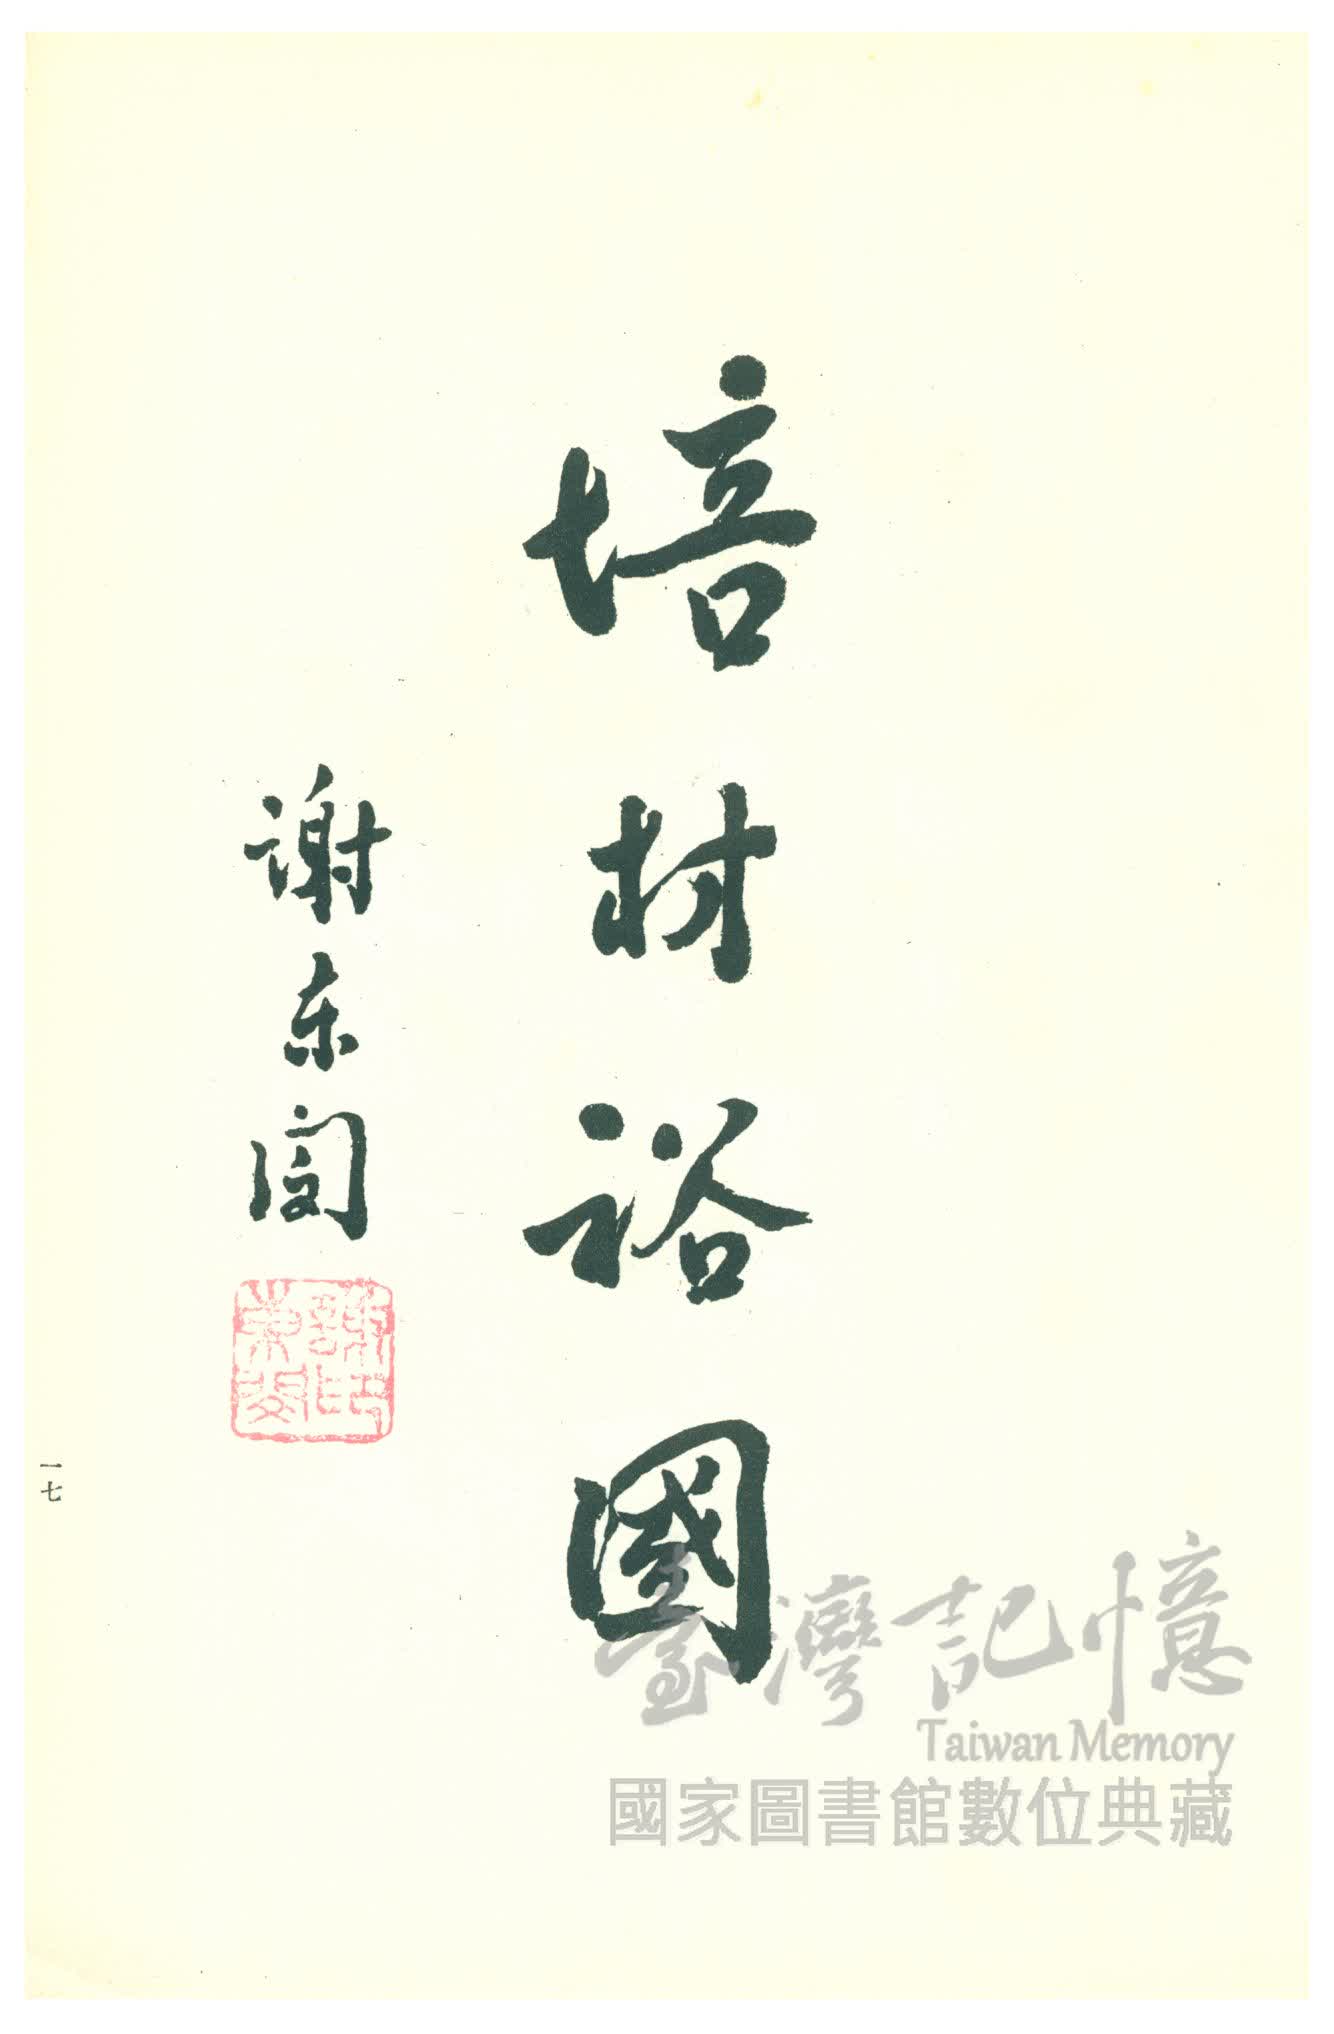 培材裕國
謝東閔
謝東閔印
一七
臺灣記憶
Taiwan Memory
國家圖書館數位典藏